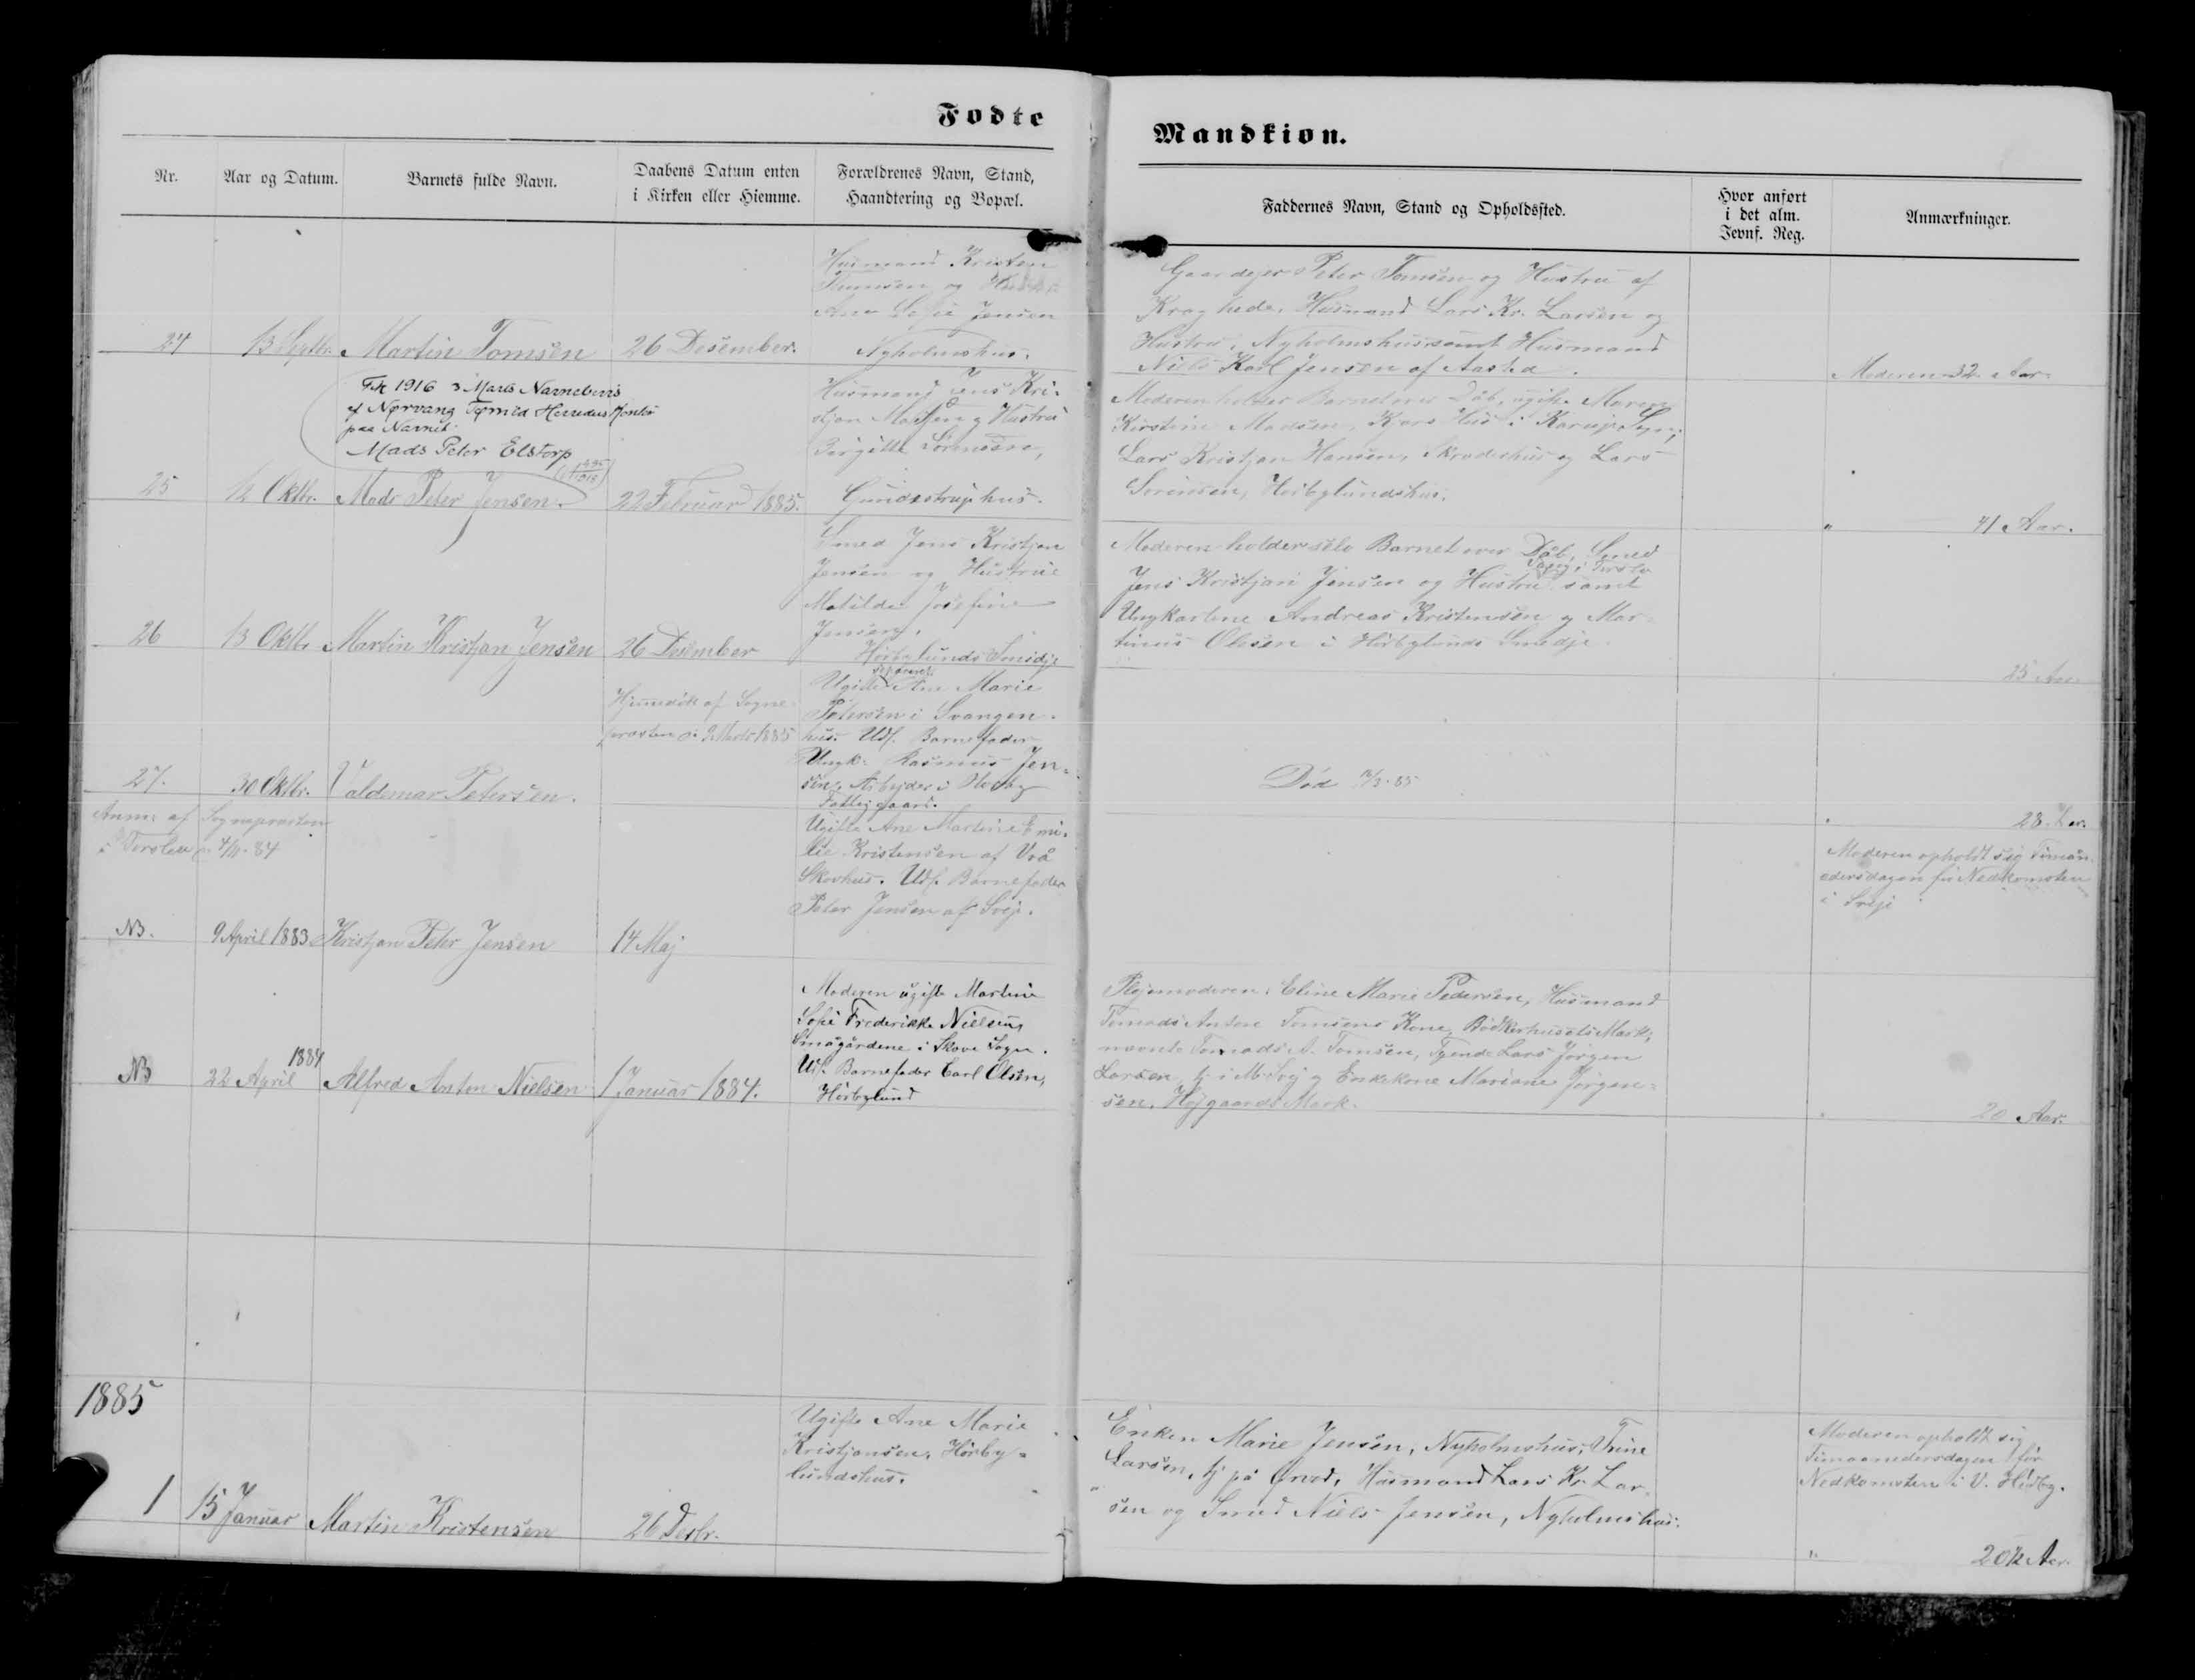 Fodte
Mandkion.
Nr.
Aar og Datum.
Barnets fulde Navn.
Daabens Datum enten
i Kirken eller Hiemme.
Forældrenes Navn, Stand,
Haandtering og Bopæl.
Faddernes Navn, Stand og Opholdssted.
Hvor anført
i det alm.
Jevnf. Reg.
Anmærkninger.
24
13 Septbr.
Martin Tomsen
26 Desember.
Husmand Kristen
Tomsen og Hustru
Ane Sofie Jensen
Nyholmshus.
Gaardejer Peter Tomsen og Hustru af
Kraghede, Husmand Lars Kr. Larsen og
Hustru, Nyholmshus samt Husmand
Niels Karl Jensen af Aasted.
Moderen 32 Aar
Flk 1916 3 Marts Navnebevis
af Nørvang Tørrild Herreders Kontor
paa Navnet
Mads Peter Elstorp
25
12 Oktbr.
Mads Peter Jensen.
22 Februar 1885.
Husmand Jens Kri-
stjan Madsen og Hustru
Birgitte Sörensen,
Gundestruphus.
Moderen holder Barnet over Dåb, ugifte Maren
Kirstine Madsen, Kjærs Hus i Karup Sogn;
Lars Kristjan Hansen, Skradeshus og Lars
Sörensen, Hörbylundshus.
" 41 Aar.
26
13 Oktbr.
Martin Kristjan Jensen
26 Desember
Smed Jens Kristjan
Jensen og Hustrue
Matilde Josefine
Jensen,
Hörbylunds Smidje
Moderen holder selv Barnet over Dåb, Smed
Jens Kristjan Jensen og Hustru samt
Ungkarlene Andreas Kristensen og Mar-
tinus Olesen i Hörbylunds Smedje.
25 Aar
27.
30 Oktbr.
Valdmar Petersen.
Hjemmedöbt af Sogne-
præsten d. 9 Marts 1885
Ugifte Ane Marie
Petersen i Svangen-
hus. Udl. Barnefader
Ungk. Rasmus Jen-
sen, Arbejder i
Fattiggaard.
Död 12/3-85
28 Aar.
Anm: af Sognepræsten
i Torslev d. 4/11-84
NB.
9 April 1883
Kristjan Peter Jensen
14 Maj
Ugifte Ane Martine Emi-
lie Kristensen af Vrå
Skovhus. Udl. Barnefader
Peter Jensen af Svip.
Moderen opholdt sig Timån-
edersdagen för Nedkomsten
i
NB
22 April
1884
Alfred Anton Nielsen
1 Januar 1884.
Moderen ugifte Martine
Sofie Frederikke Nielsen,
Smågårdene i Skæve Sogn.
Udl. Barnefader Carl Olsen,
Hörbylund
Plejemoderen: Eline Marie Pedersen, Husmand
Tomads Anton Tomsens Kone, Bödkerhusets Mark,
nævnte Tomads A. Tomsen, Tyende Lars Jörgen
Larsen, tj. i M. Svej og Enkekone Mariane Jörgen-
sen, Höjgaards Mark.
" 20 Aar.
1885
1
15 Januar
Martin Kristensen
26 Desbr.
Ugifte Ane Marie
Kristjansen, Hörby-
lundshus.
Enken Marie Jensen, Nyholmshus; Trine
Larsen, tj på Ørsd, Husmand Lars Kr. Lar-
sen og Smed Niels Jensen, Nyholmshus.
Moderen opholdt sig
Timaanedersdagen för
Nedkomsten i V. Hörby.
" 20 1/2 Aar.